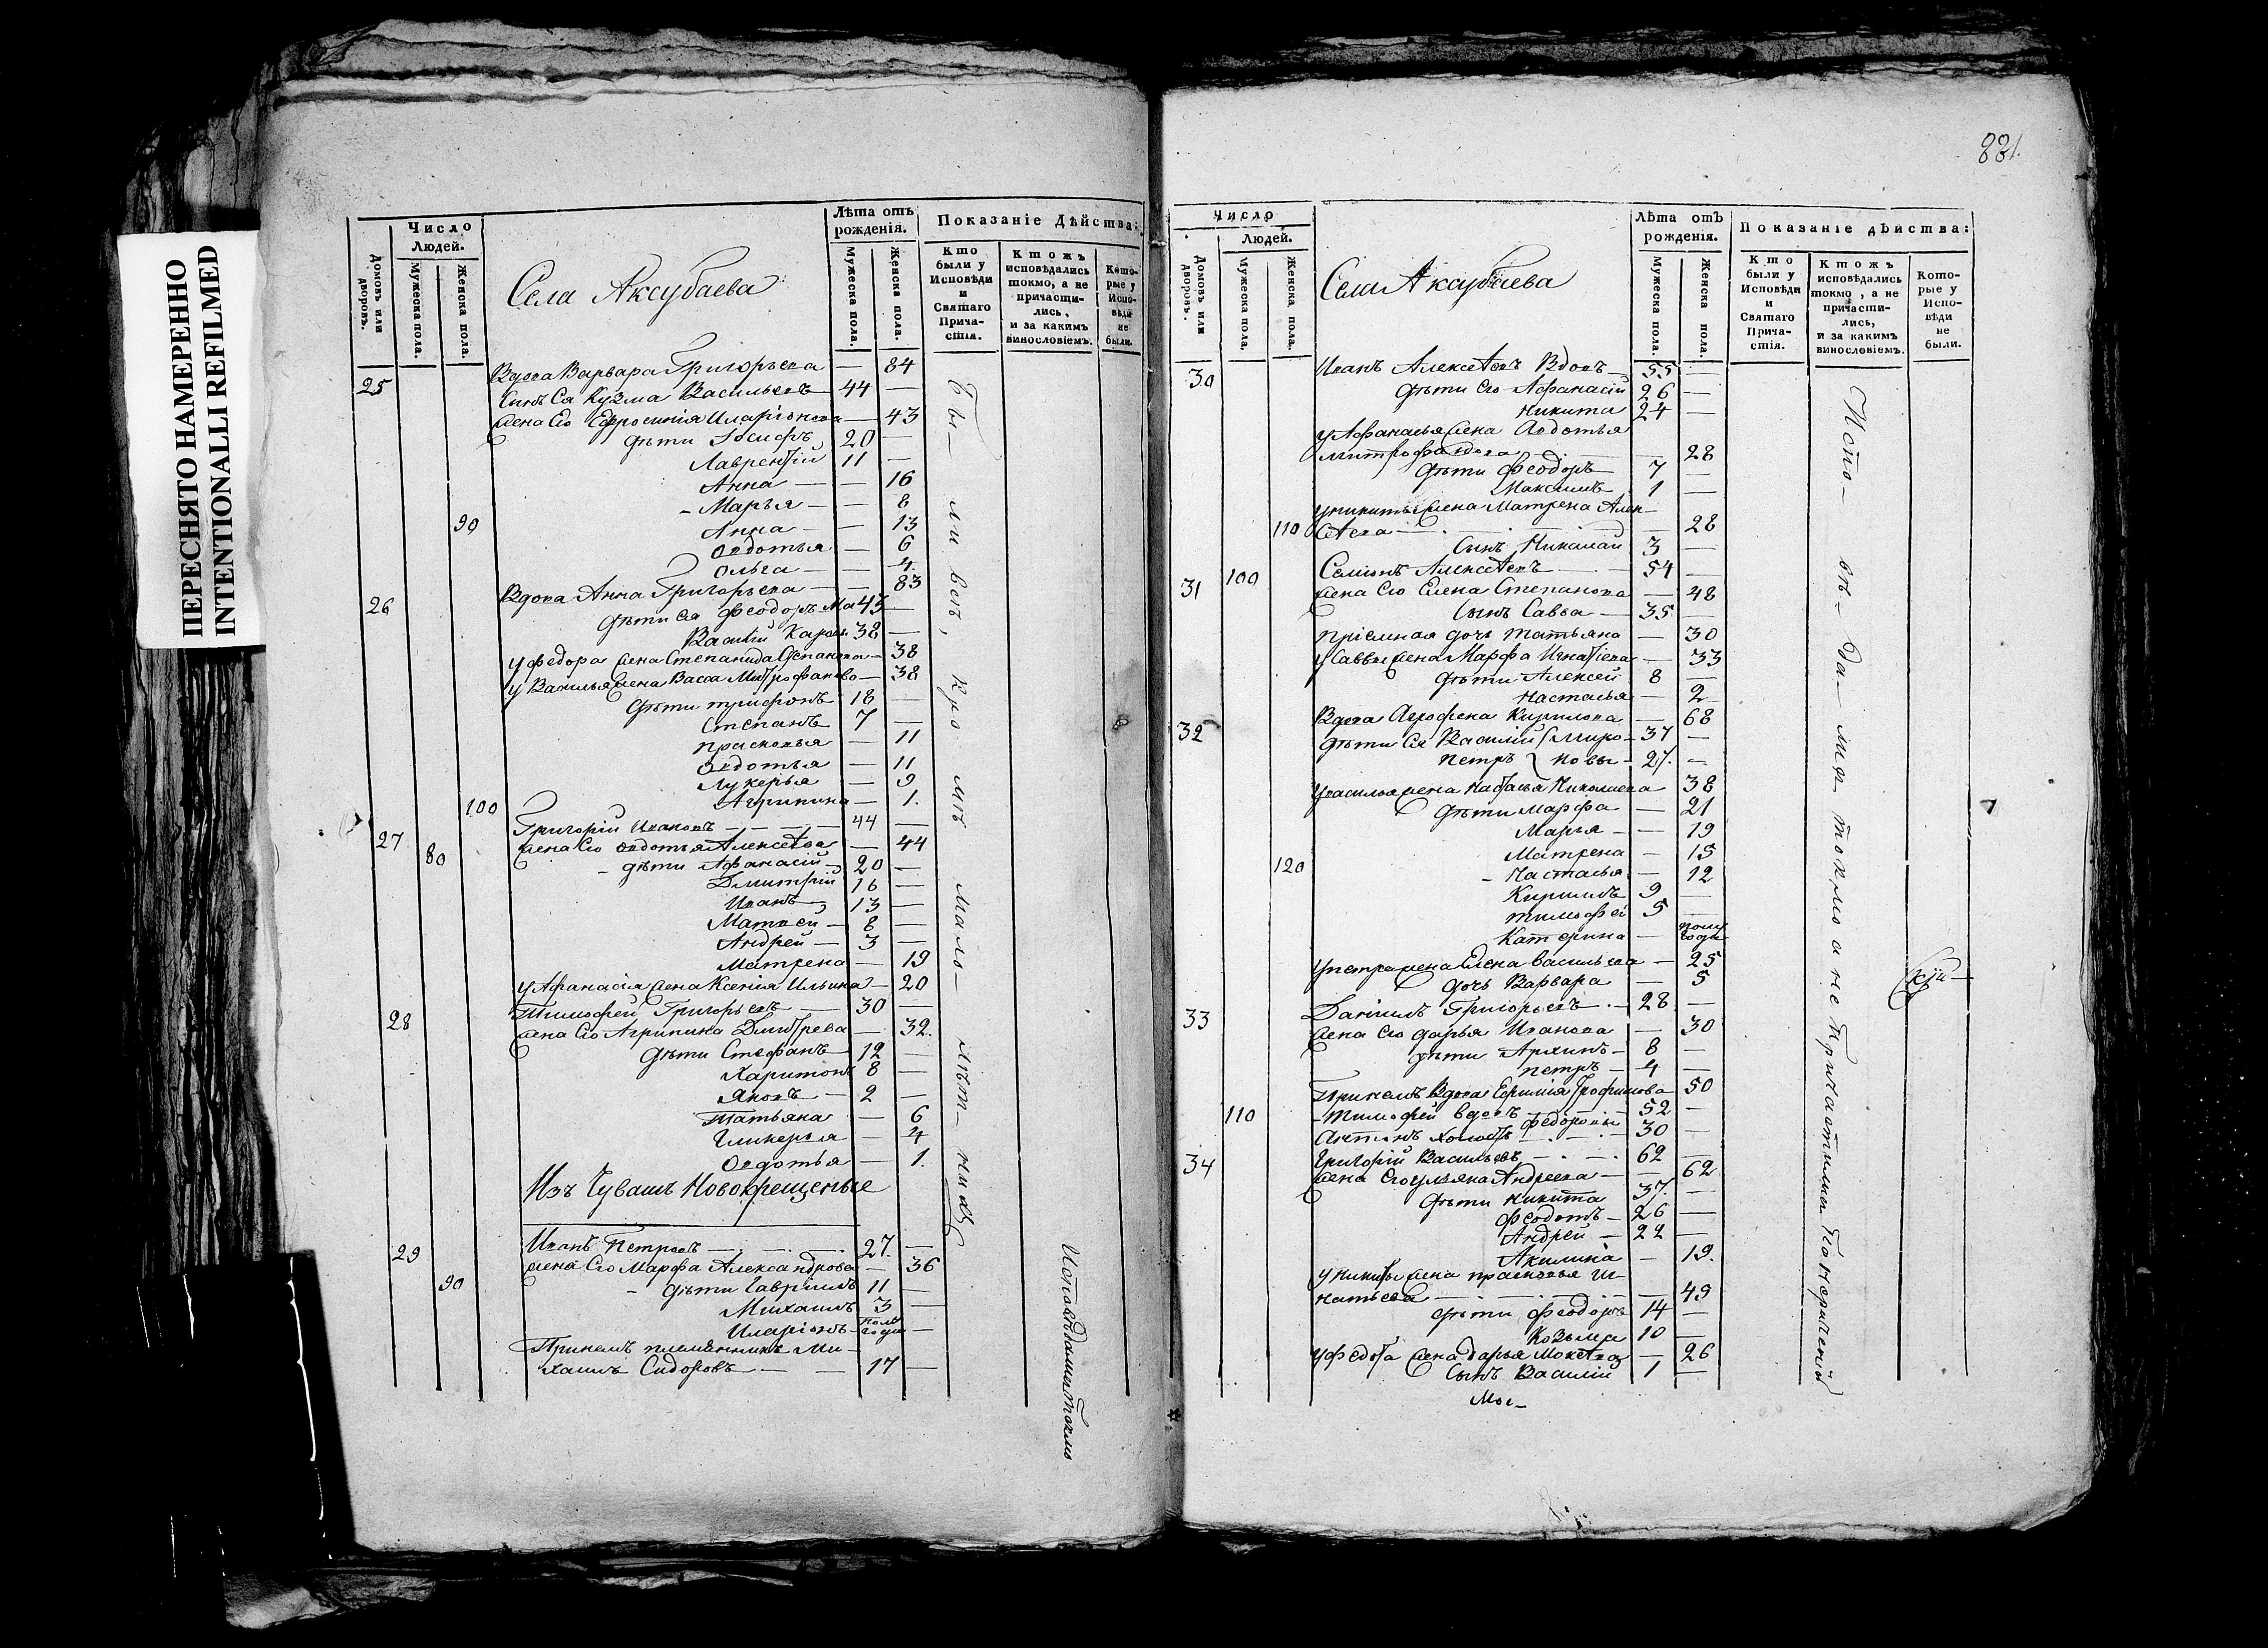 ПЕРЕСНЯТО НАМЕРЕННО
INTENTIONALLI REFILMED
Число
Людей.
Домовъ или дворовъ.
Мужеска пола.
Женска пола.
Села Аксубаева
Лѣта отъ
рожденія.
Мужеска пола.
Женска пола.
Показаніе Дѣйства:
Кто
были у
Исповѣди
и
Святаго
Прича-
стія.
Ктожъ
исповѣдались
токмо, а не
причасти-
лись,
и за какимъ
винословіемъ.
Кото-
рые у
Испо-
вѣди
не
были.
25 Вдова Варвара Григорьева — 84
Сынъ Ея Кузма Васильевъ 44 —
Жена Его Ефросинія Иларіонова — 43
дѣти Іосифъ 20 —
Лаврентій 11 —
Анна — — 16
Марья — — 8
90 Анна — — 13
Овдотья — 6
Ольга — — 4.
26 Вдова Анна Григорьева — 83
дѣти Ея Феодоръ Ма 43 —
Василій Каровы 38 —
у Федора жена Степанида Степанова — 38
у Василья жена Васса Митрофанова — 38
дѣти Трифонъ 18 —
Степанъ 7 —
Прасковья — 11
Овдотья — 11
Лукерья — 9
100 Агрипина — 1.
27 Григорій Ивановъ — 44 —
80 жена Его Овдотья Алексѣева — 44
дѣти Афанасій 20 —
Дмитрій 16 —
Иванъ 13 —
Матвей — 8 —
Андрей — 3 —
Матрена — 19
у Афанасія жена Ксенія Ильина — 20
28 Тимофей Григорьевъ 30 —
жена Его Агрипина Дмитрева — 32.
дѣти Стефанъ 12 —
Харитонъ 8 —
Яковъ — 2 —
Татьяна — 6
Гликерья — 4
Овдотья — 1.
Изъ Чувашъ Новокрещеные
29 Иванъ Петровъ 27. —
жена Его Марфа Александрова — 36
90 дѣти Гавріилъ 11 —
Михаилъ 3 —
Иларіонъ полъ года —
Пріемъ племянникъ Ми-
хаилъ Сидоровъ — 17 —
Бы- ли всѣ, кро мѣ мало- лѣт- никъ
Исповѣдались токмо
881.
Число
Людей.
Домовъ или дворовъ.
Мужеска пола.
Женска пола.
Села Аксубаева
Лѣта отъ
рожденія.
Мужеска пола.
Женска пола.
Показаніе дѣйства:
Кто
были у
Исповѣди
и
Святаго
Прича-
стія.
Ктожъ
исповѣдались
токмо, а не
причасти-
лись,
и за какимъ
винословіемъ.
Кото-
рые у
Испо-
вѣди
не
были.
30 Иванъ Алексѣевъ Вдовъ 55 —
дѣти Его Афанасій 26 —
Никита 24 —
у Афанасья жена Авдотья
Митрофанова — 28
дѣти Феодоръ 7 —
Максимъ 1 —
у Никиты жена Матрена Алек-
110 сѣева — 28
Сынъ Николай 3 —
31 100 Семіонъ Алексѣевъ 54 —
жена Его Елена Степанова — 48
Сынъ Савва — 35 —
пріемная дочь Татьяна — 30
у Саввы жена Марфа Игнатіева — 33
дѣти Алексей 8 —
Насталья — 2
32 Вдова Агрофена Кирилова — 68
дѣти Ея Василій Миро- 37 —
Петръ новы 27. —
у Василья жена Наталья Николаева 38
дѣти Марфа — 21
Марья — — 19
Матрена — 15
120 Насталья — 12
Кирилъ 9 —
Тимофей 5 —
Катерина — полу года
у Петра жена Елена Васильева — 25
дочь Варвара — 5
33 Даніилъ Григорьевъ — 28 —
жена Его Дарья Иванова — 30
дѣти Архипъ — 8 —
Петръ — 4 —
Пріемъ Вдова Ефимія Трофимова 50
110 Тимофей вдовъ 52 —
Антонъ холостъ Федоровы 30 —
34 Григорій Васильевъ 62 —
жена Его Ульяна Андреева — 62
дѣти Никита 37. —
Федотъ — 26 —
Андрей — 22 —
Акилина — 19.
у Никиты жена Прасковья Иг-
натьева — 49
дѣти Феодоръ 14 —
Козьма 10 —
у Федота жена Дарья Мокѣева — 26
Сынъ Василій 1 —
Мос-
Испо- вѣ- да- лись токмо а не Причастились По нерачению